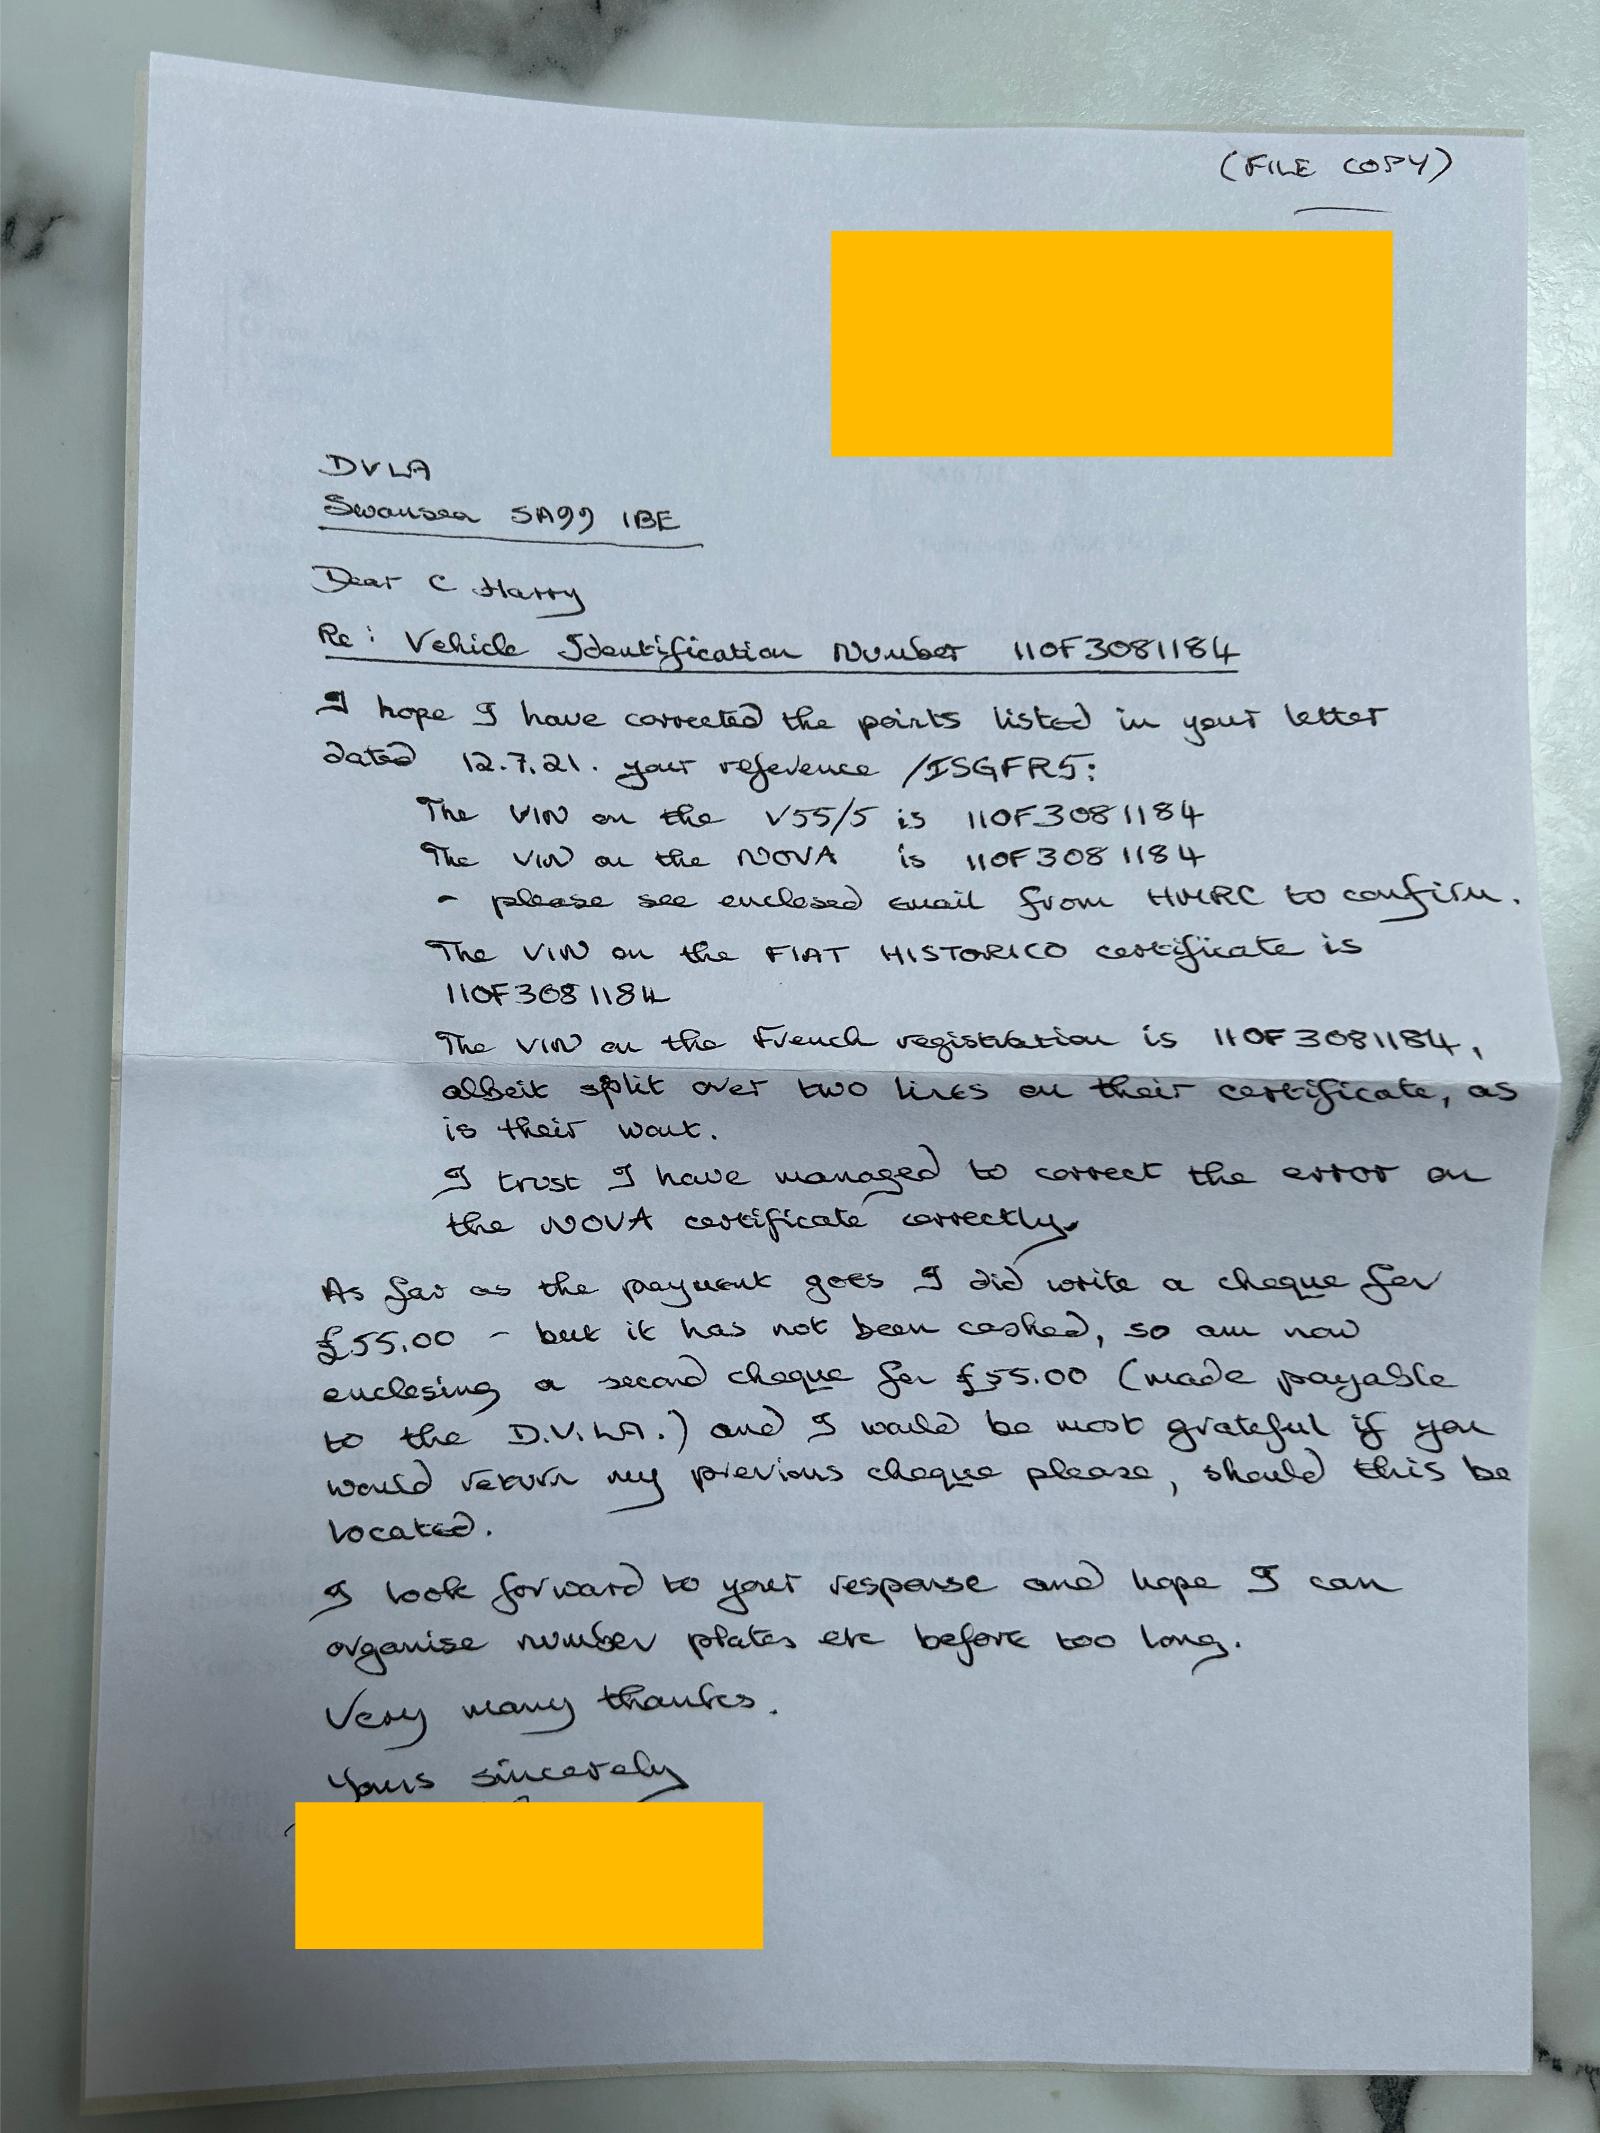 (FILE COPY)
DVLA
Swansea SA99 1BE
Dear C Harry
Re: Vehicle Identification Number 110F3081184
I hope I have corrected the points listed in your letter
dated 12.7.21. your reference /ISGFR5:
The VIN on the V55/5 is 110F3081184
The VIN on the NOVA is 110F3081184
- please see enclosed email from HMRC to confirm.
The VIN on the FIAT HISTORICO certificate is
110F3081184
The VIN on the French registration is 110F3081184,
albeit split over two lines on their certificate, as
is their wont.
I trust I have managed to correct the error on
the NOVA certificate correctly.
As far as the payment goes I did write a cheque for
£55.00 - but it has not been cashed, so am now
enclosing a second cheque for £55.00 (made payable
to the D.V.LA.) and I would be most grateful if you
would return my previous cheque please, should this be
located.
I look forward to your response and hope I can
organise number plates etc before too long.
Very many thanks.
Yours sincerely